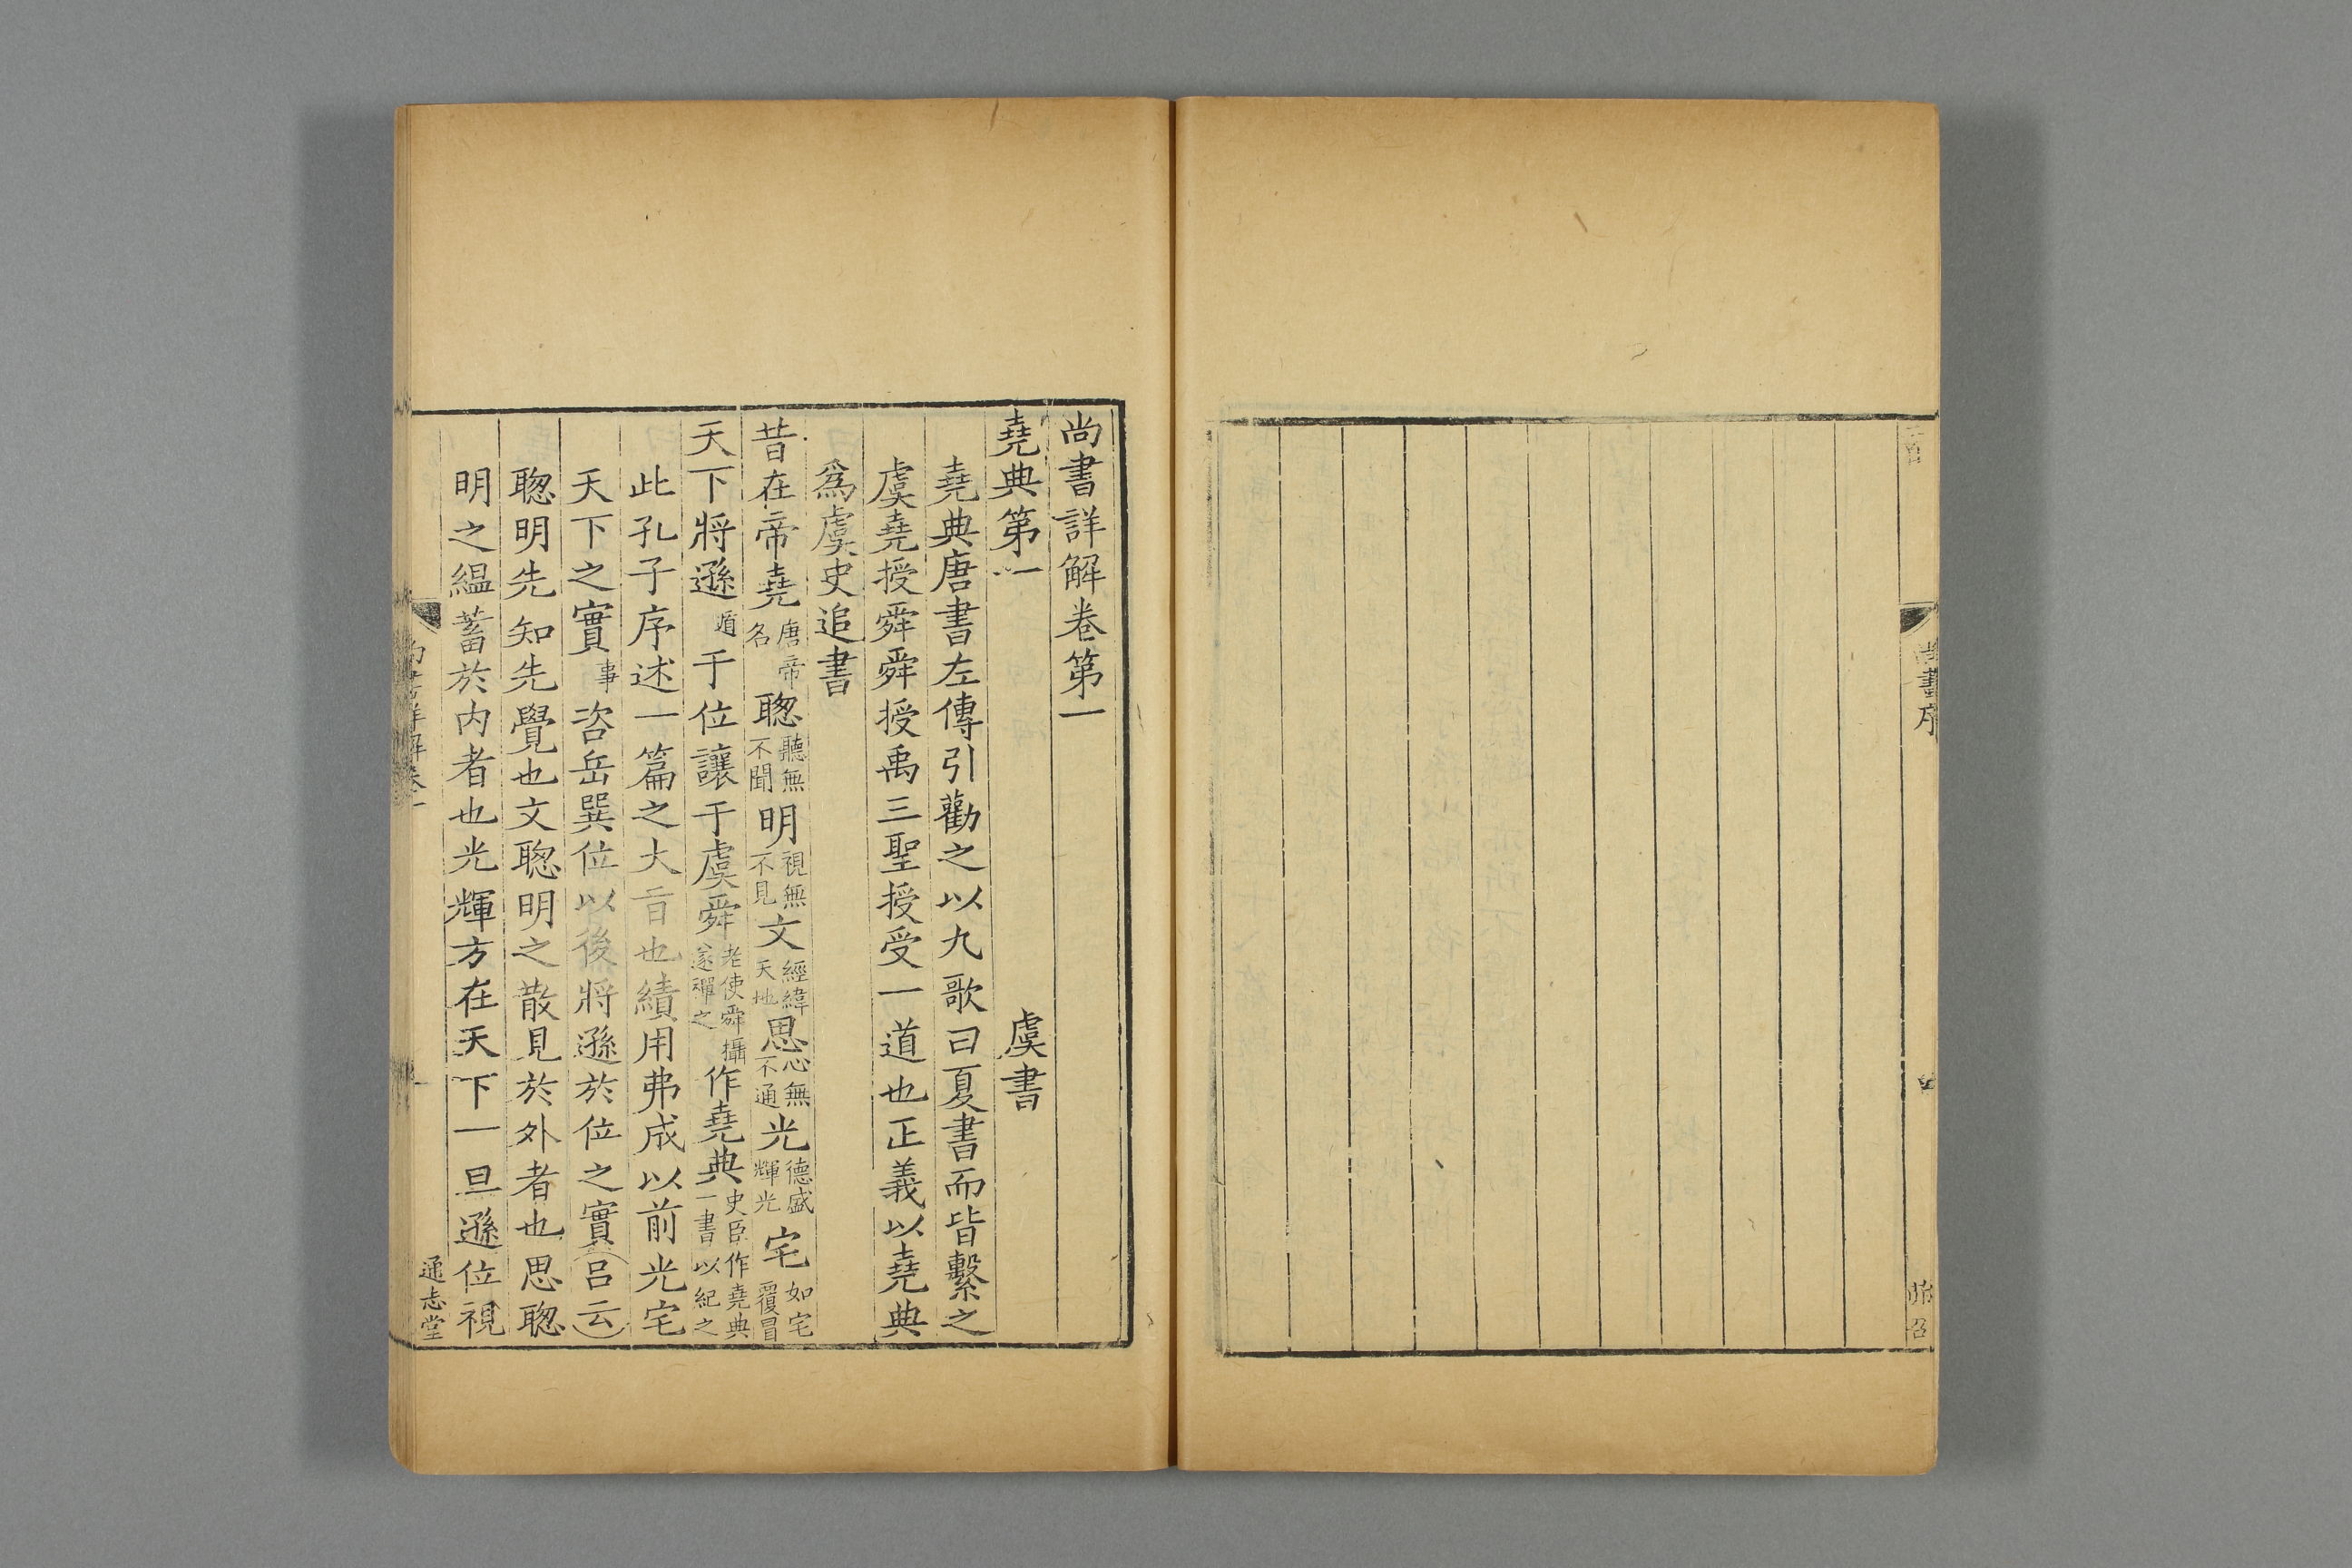 尚書序
尚書詳解卷第一
堯典第一 虞書
堯典唐書左傳引勸之以九歌曰夏書而皆繫之
虞堯授舜舜授禹三聖授受一道也正義以堯典
爲虞史追書
昔在帝堯唐帝名聦聽無不聞明視無不見文經緯天地思心無不通光德盛輝光宅如宅覆冒
天下將遜遁于位讓于虞舜老使舜攝遂禪之作堯典史臣作堯典一書以紀之
此孔子序述一篇之大㫖也績用弗成以前光宅
天下之實事咨岳巽位以後將遜於位之實呂云
聦明先知先覺也文聦明之散見於外者也思聦
明之緼蓄於内者也光輝方在天下一旦遜位視
尚書詳解卷一
一
通志堂